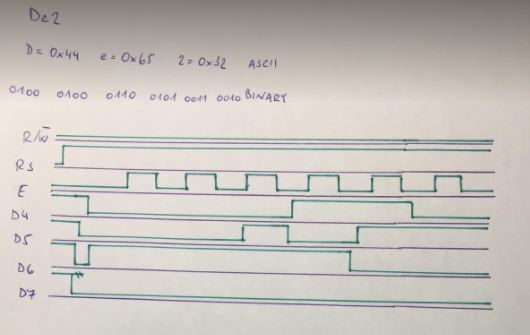 De2
D = 0x44 e = 0x65 2 = 0x32 ASCII
0100 0100 0110 0101 0011 0010 BINARY
R/W̅
RS
E
D4
D5
D6
D7